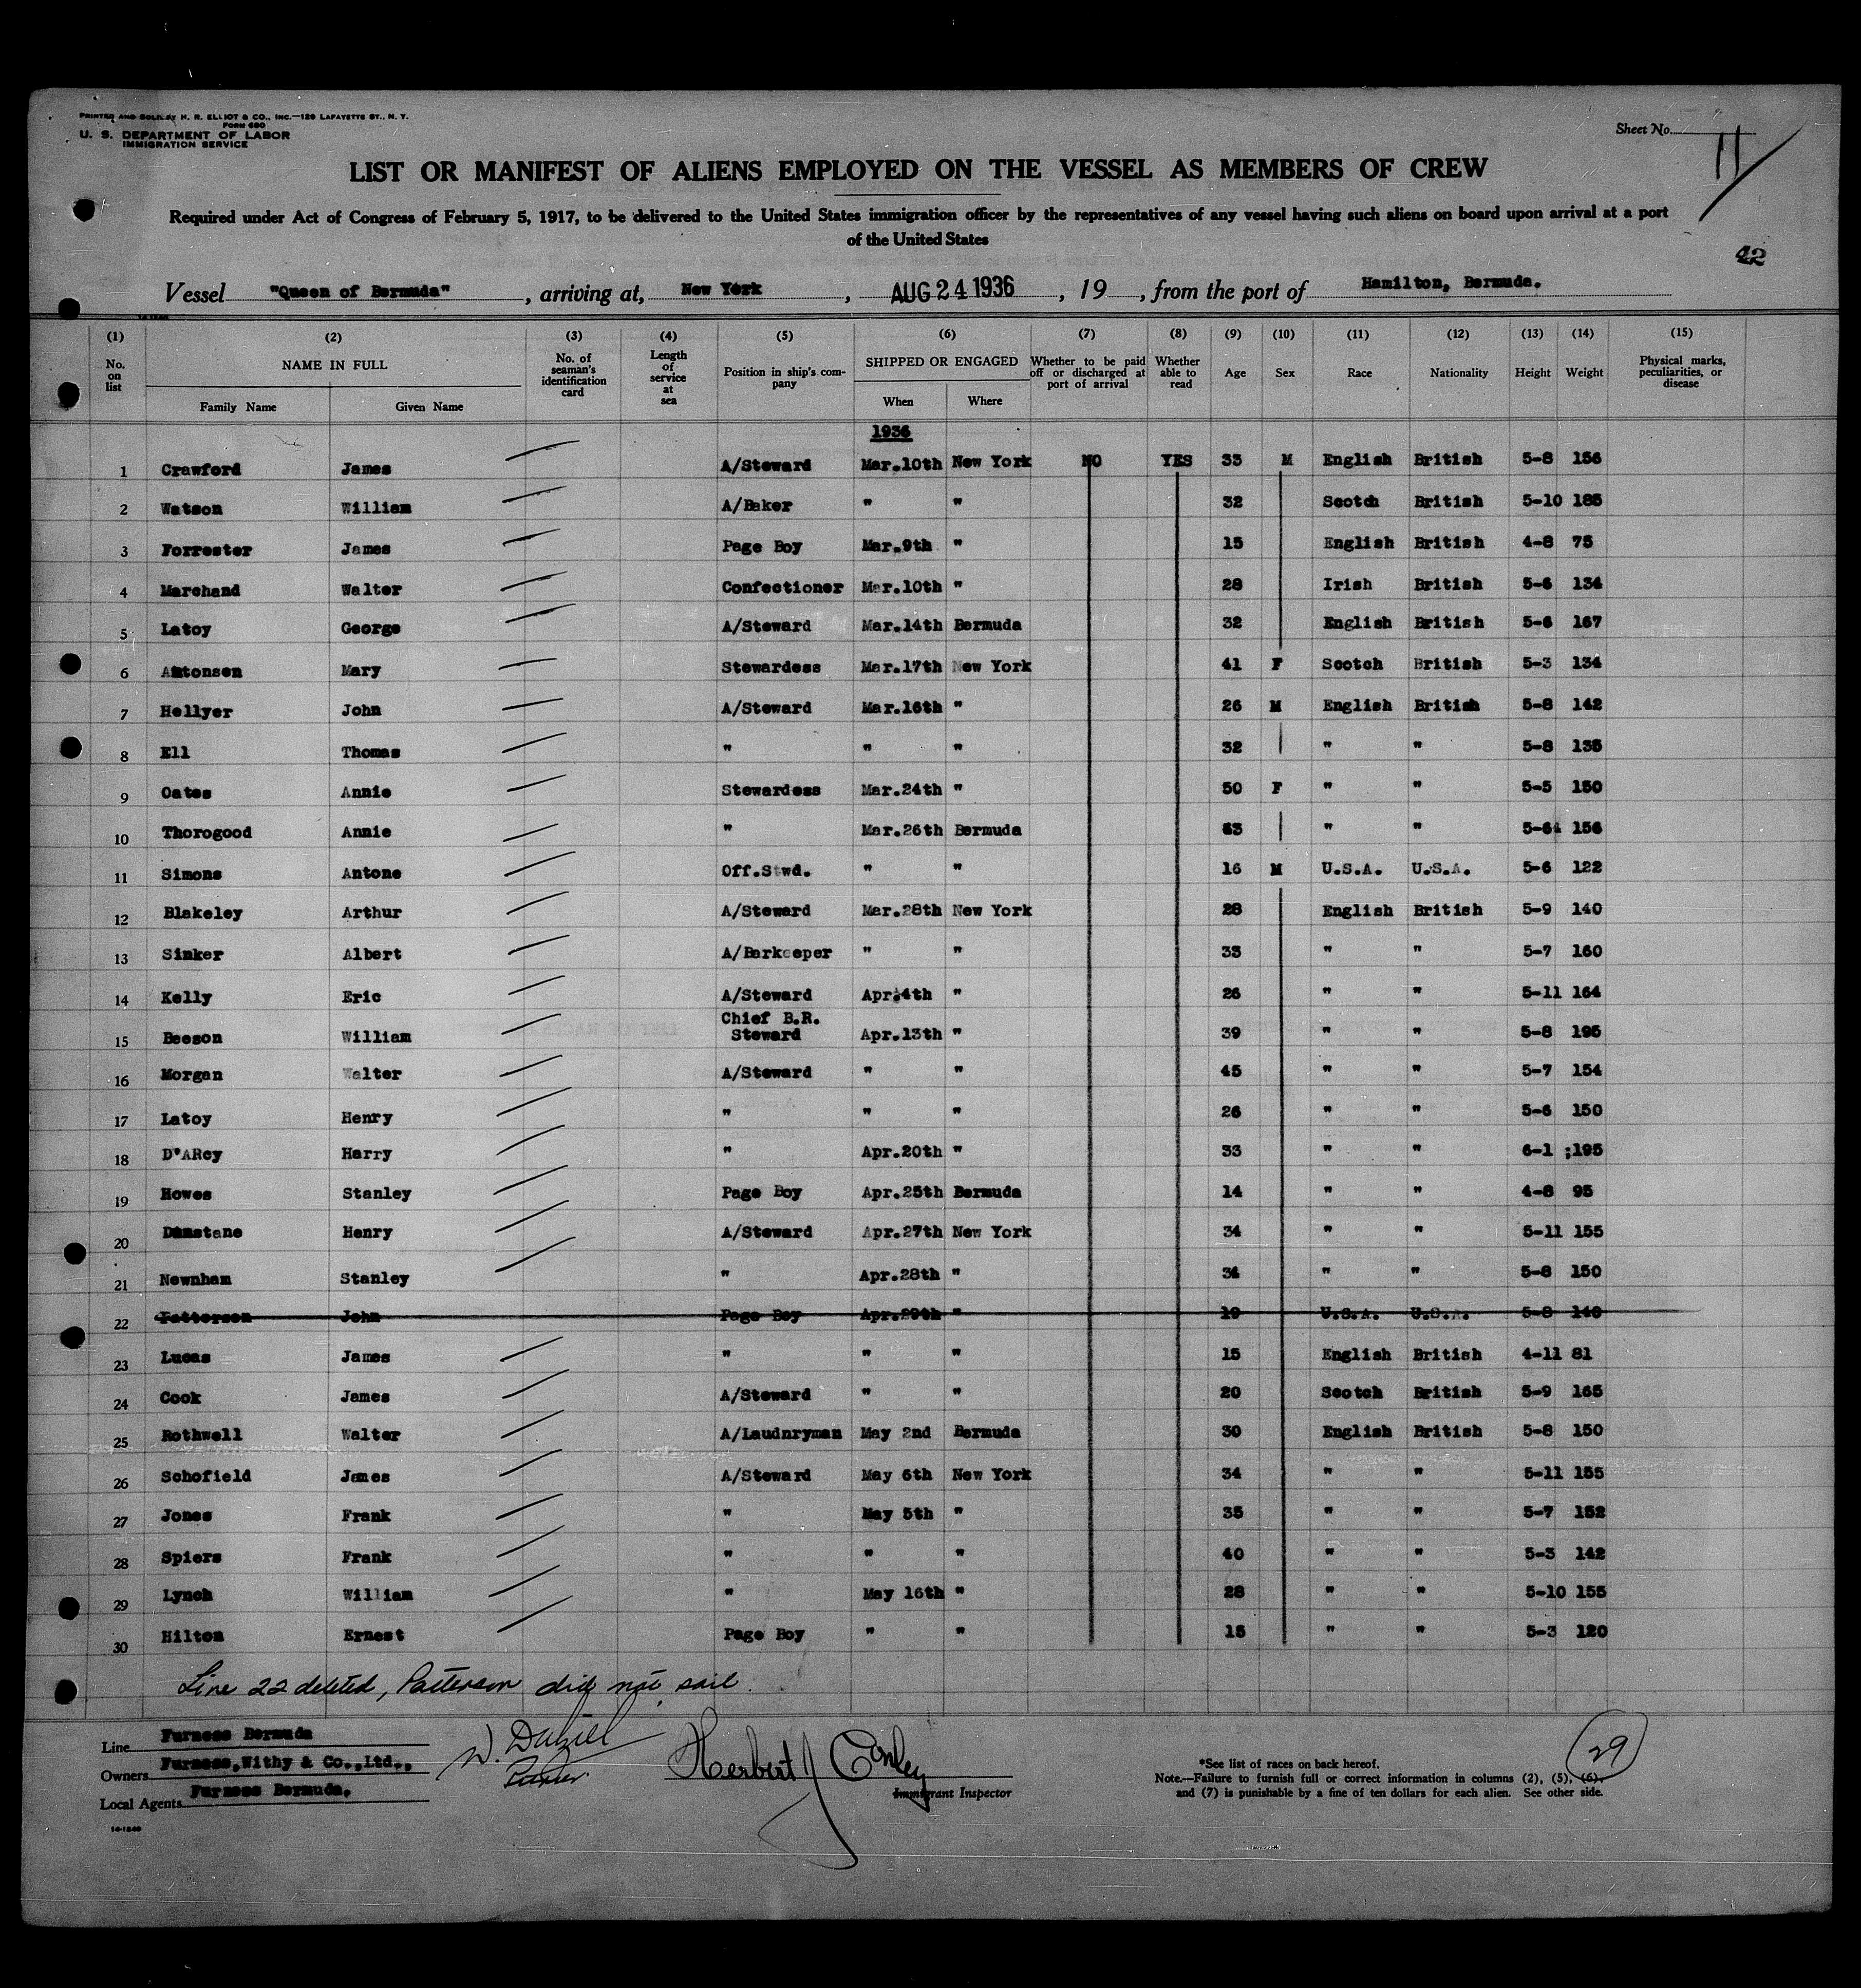 PRINTED AND SOLD BY H. R. ELLIOT & CO., INC.—129 LAFAYETTE ST., N. Y.
FORM 680
U. S. DEPARTMENT OF LABOR
IMMIGRATION SERVICE
Sheet No.
11
LIST OR MANIFEST OF ALIENS EMPLOYED ON THE VESSEL AS MEMBERS OF CREW
Required under Act of Congress of February 5, 1917, to be delivered to the United States immigration officer by the representatives of any vessel having such aliens on board upon arrival at a port
of the United States
42
Vessel "Queen of Bermuda", arriving at, New York, AUG 24 1936, 19, from the port of Hamilton, Bermuda.
(1) (2) (3) (4) (5) (6) (7) (8) (9) (10) (11) (12) (13) (14) (15)
No. on list NAME IN FULL Family Name Given Name No. of seaman's identification card Length of service at sea Position in ship's company SHIPPED OR ENGAGED When Where Whether to be paid off or discharged at port of arrival Whether able to read Age Sex Race Nationality Height Weight Physical marks, peculiarities, or disease
1936
1 Crawford James A/Steward Mar.10th New York NO YES 33 M English British 5-8 156
2 Watson William A/Baker " " 32 Scotch British 5-10 185
3 Forrester James Page Boy Mar.9th " 15 English British 4-8 75
4 Marchand Walter Confectioner Mar.10th " 28 Irish British 5-6 134
5 Latoy George A/Steward Mar.14th Bermuda 32 English British 5-6 167
6 Antonsen Mary Stewardess Mar.17th New York 41 F Scotch British 5-3 134
7 Hellyer John A/Steward Mar.16th " 26 M English British 5-8 142
8 Ell Thomas " " " 32 " " 5-8 135
9 Oates Annie Stewardess Mar.24th " 50 F " " 5-5 150
10 Thorogood Annie " Mar.26th Bermuda " " 156
11 Simons Antone Off.Stwd. " " 16 M U.S.A. U.S.A. 5-6 122
12 Blakeley Arthur A/Steward Mar.28th New York 28 English British 5-9 140
13 Sinker Albert A/Barkeeper " " 33 " " 5-7 160
14 Kelly Eric A/Steward Apr.4th " 26 " " 5-11 164
15 Beeson William Chief B.R. Steward Apr.13th " 39 " " 5-8 195
16 Morgan Walter A/Steward " " 45 " " 5-7 154
17 Latoy Henry " " " 26 " " 5-6 150
18 D'ARcy Harry " Apr.20th " 33 " " 6-1 ;195
19 Howes Stanley Page Boy Apr.25th Bermuda 14 " " 4-8 95
20 Henry A/Steward Apr.27th New York 34 " " 5-11 155
21 Newnham Stanley " Apr.28th " 34 " " 5-8 150
22 Patterson John Page Boy Apr.29th " 19 U.S.A. U.S.A. 5-8 140
23 Lucas James " " " 15 English British 4-11 81
24 Cook James A/Steward " " 20 Scotch British 5-9 165
25 Rothwell Walter A/Laudnryman May 2nd Bermuda 30 English British 5-8 150
26 Schofield James A/Steward May 6th New York 34 " " 5-11 155
27 Jones Frank " May 5th " 35 " " 5-7 152
28 Spiers Frank " " " 40 " " 5-3 142
29 Lynch William " May 16th " 28 " " 5-10 155
30 Hilton Ernest Page Boy " " 15 " " 5-3 120
Line 22 deleted, Patterson did not sail.
Line Furness Bermuda
Owners Furness,Withy & Co.,Ltd.,
Local Agents Furness Bermuda.
W. Dalziell
Purser.
Herbert J Conley
Immigrant Inspector
29
*See list of races on back hereof.
Note.—Failure to furnish full or correct information in columns (2), (5), (6),
and (7) is punishable by a fine of ten dollars for each alien. See other side.
14-1240